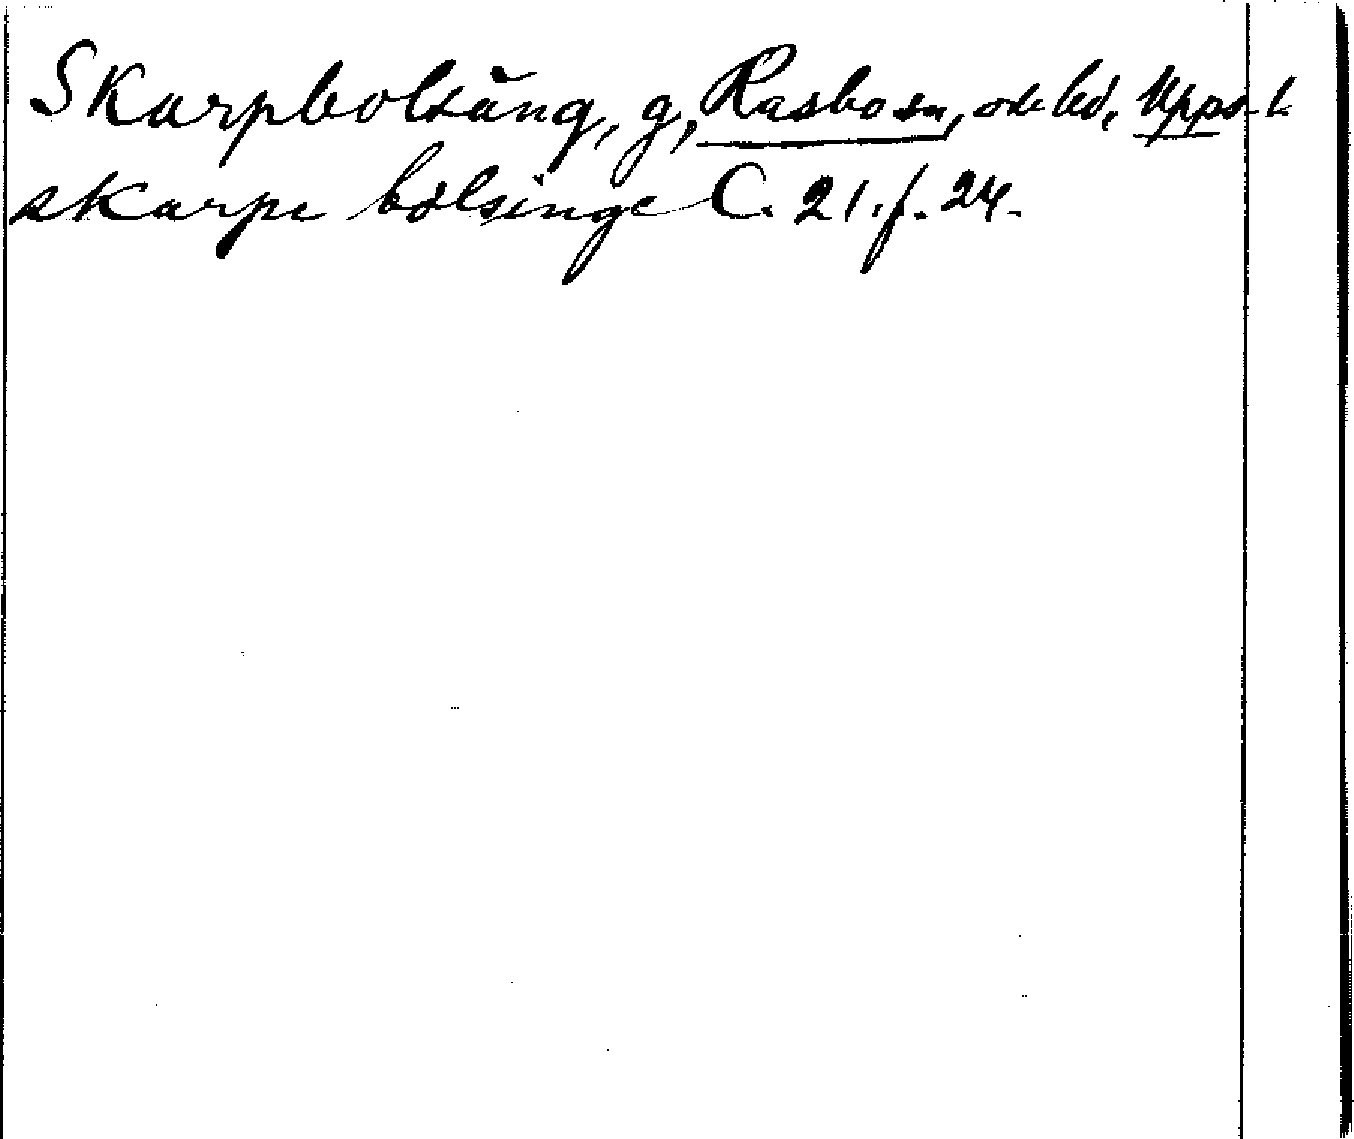 Skarpbolsäng, g, Rasbo sn, o hd, Upps. l.
skarpe bolsinge C. 21. f. 24.